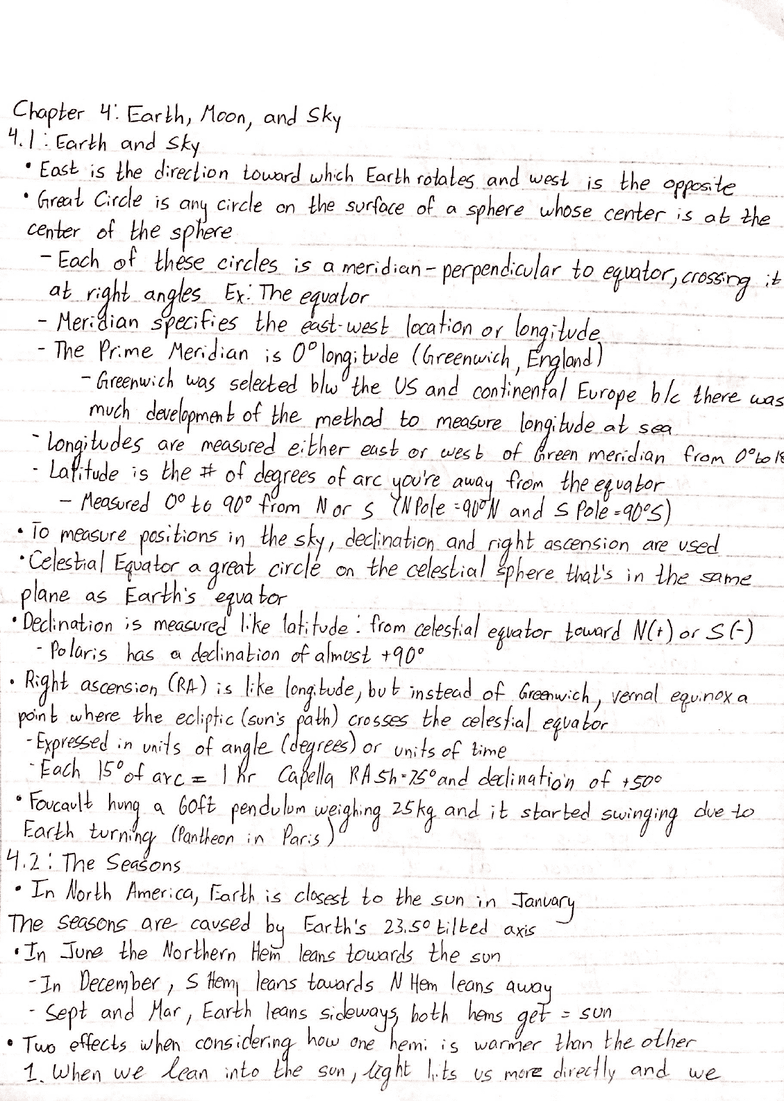 Chapter 4: Earth, Moon, and Sky
4.1: Earth and Sky
• East is the direction toward which Earth rotates and west is the opposite
• Great Circle is any circle on the surface of a sphere whose center is at the
center of the sphere
- Each of these circles is a meridian - perpendicular to equator, crossing it
at right angles Ex: The equator
- Meridian specifies the east-west location or longitude
- The Prime Meridian is 0° longitude (Greenwich, England)
- Greenwich was selected b/w the US and continental Europe b/c there was
much development of the method to measure longitude at sea
- Longitudes are measured either east or west of Green meridian from 0° to 18
- Latitude is the # of degrees of arc you're away from the equator
- Measured 0° to 90° from N or S (N Pole = 90°N and S Pole = 90°S)
• To measure positions in the sky, declination and right ascension are used
• Celestial Equator a great circle on the celestial sphere that's in the same
plane as Earth's equator
• Declination is measured like latitude: from celestial equator toward N(+) or S(-)
- Polaris has a declination of almost +90°
• Right ascension (RA) is like longitude, but instead of Greenwich, vernal equinox a
point where the ecliptic (sun's path) crosses the celestial equator
- Expressed in units of angle (degrees) or units of time
- Each 15° of arc = 1 hr Capella RA 5h=75° and declination of +50°
• Foucault hung a 60ft pendulum weighing 25kg and it started swinging due to
Earth turning (Pantheon in Paris)
4.2: The Seasons
• In North America, Earth is closest to the sun in January
The seasons are caused by Earth's 23.5° tilted axis
• In June the Northern Hem leans towards the sun
- In December, S Hem leans towards N Hem leans away
- Sept and Mar, Earth leans sideways, both hems get = sun
• Two effects when considering how one hemi. is warmer than the other
1. When we lean into the sun, light hits us more directly and we